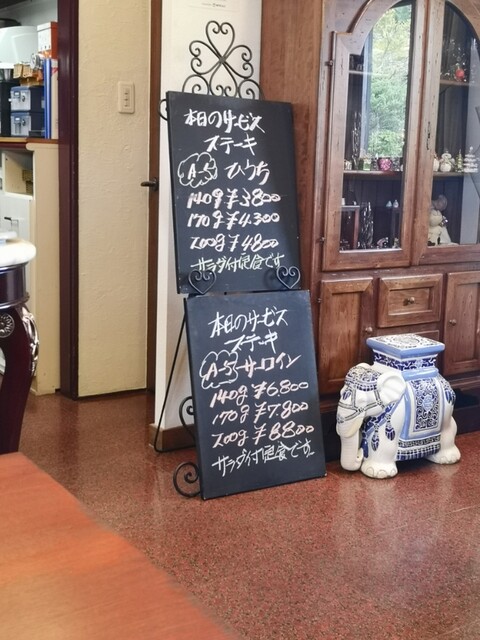 本日のサービス
ステーキ
A-5 ひうち
140g ¥3800
170g ¥4.300
200g ¥4800
サラダ付定食です
本日のサービス
ステーキ
A-5 サーロイン
140g ¥6.800
170g ¥7.800
200g ¥8800
サラダ付定食です。